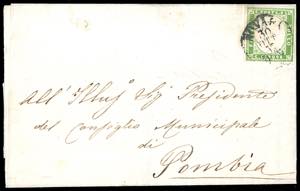 NOVARA
30
All' Illus. Sig. Presidente
del Consiglio Municipale
di
Pombia